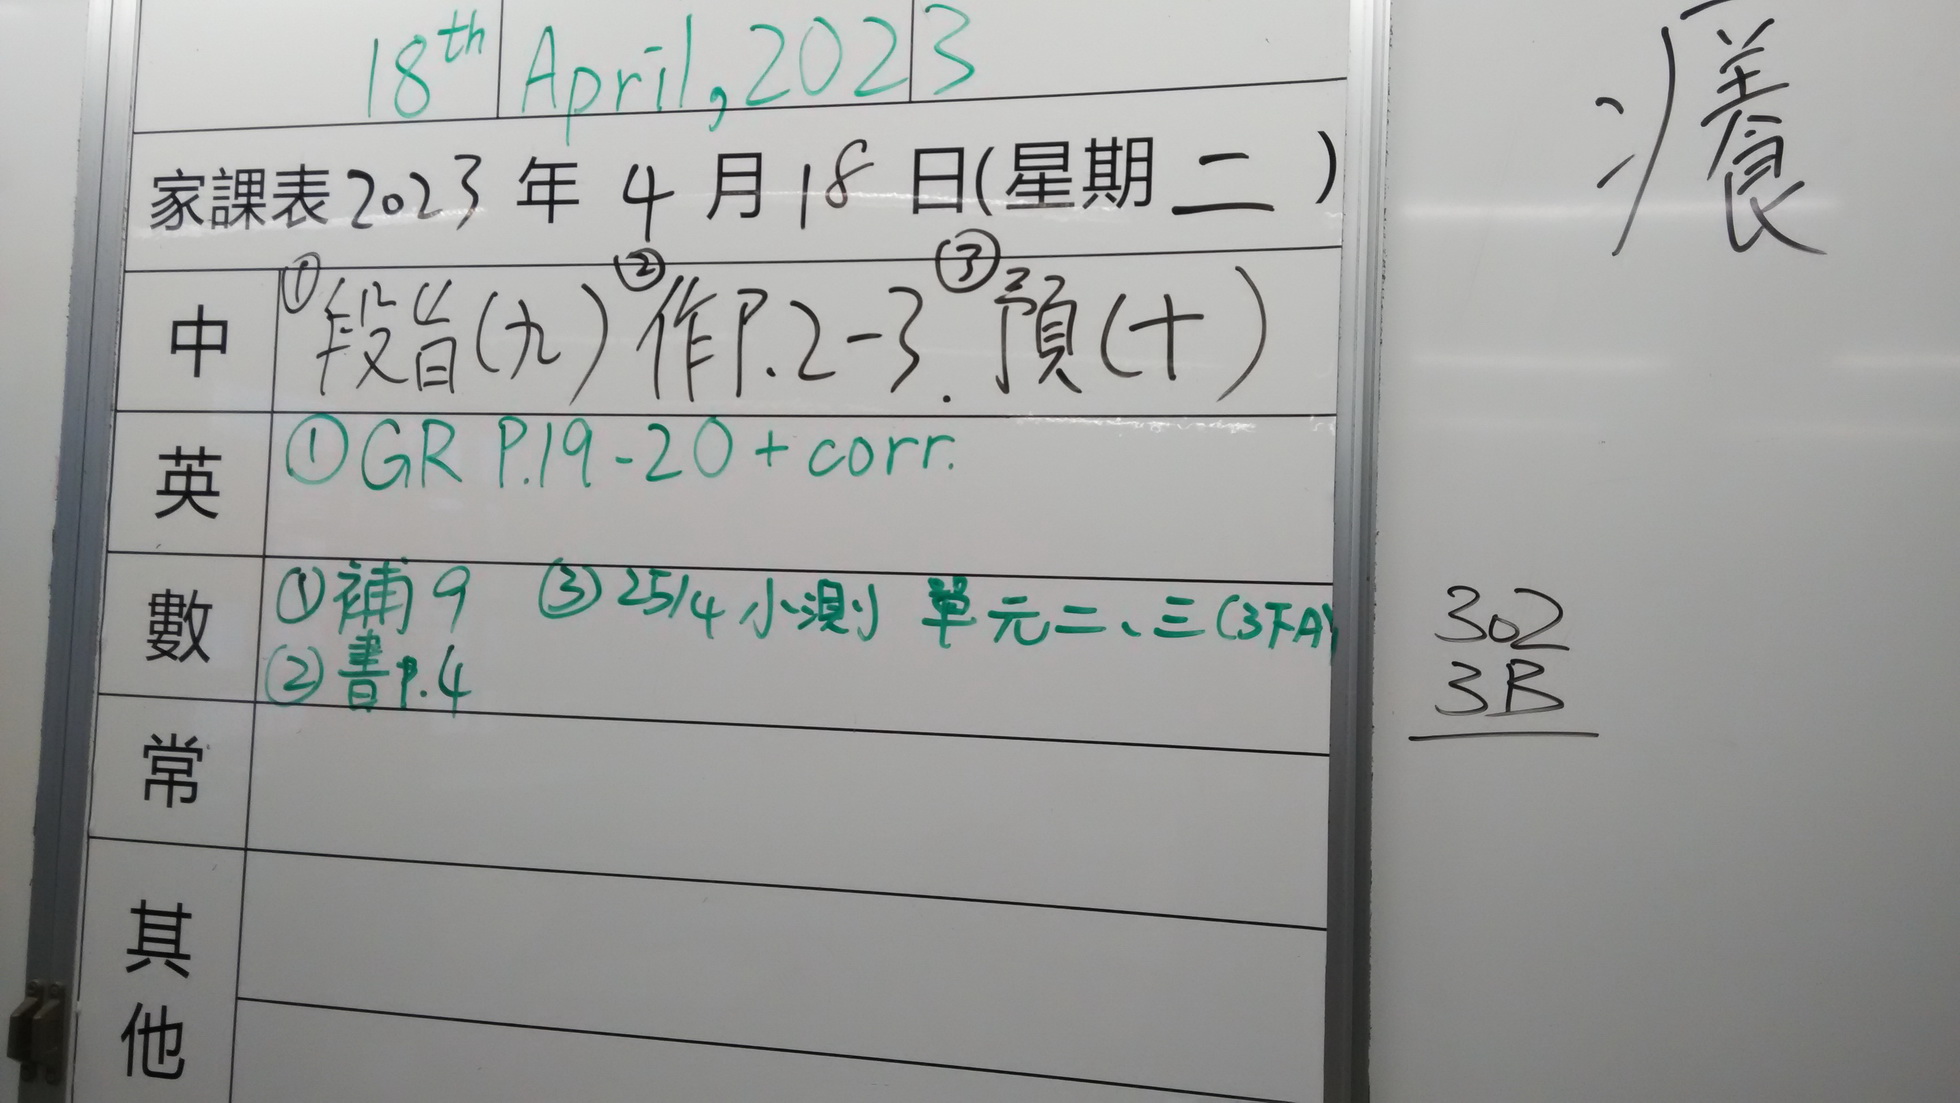 18th April, 2023
家課表 2023 年 4 月 18 日(星期 二 )
中 ①段旨(九) ②作P.2-3. ③預(十)
英 ①GR P.19-20 + corr.
數 ①補9 ③25/4 小測 單元二、三(3下A)
②書P.4
常
其他
癢
302
3B